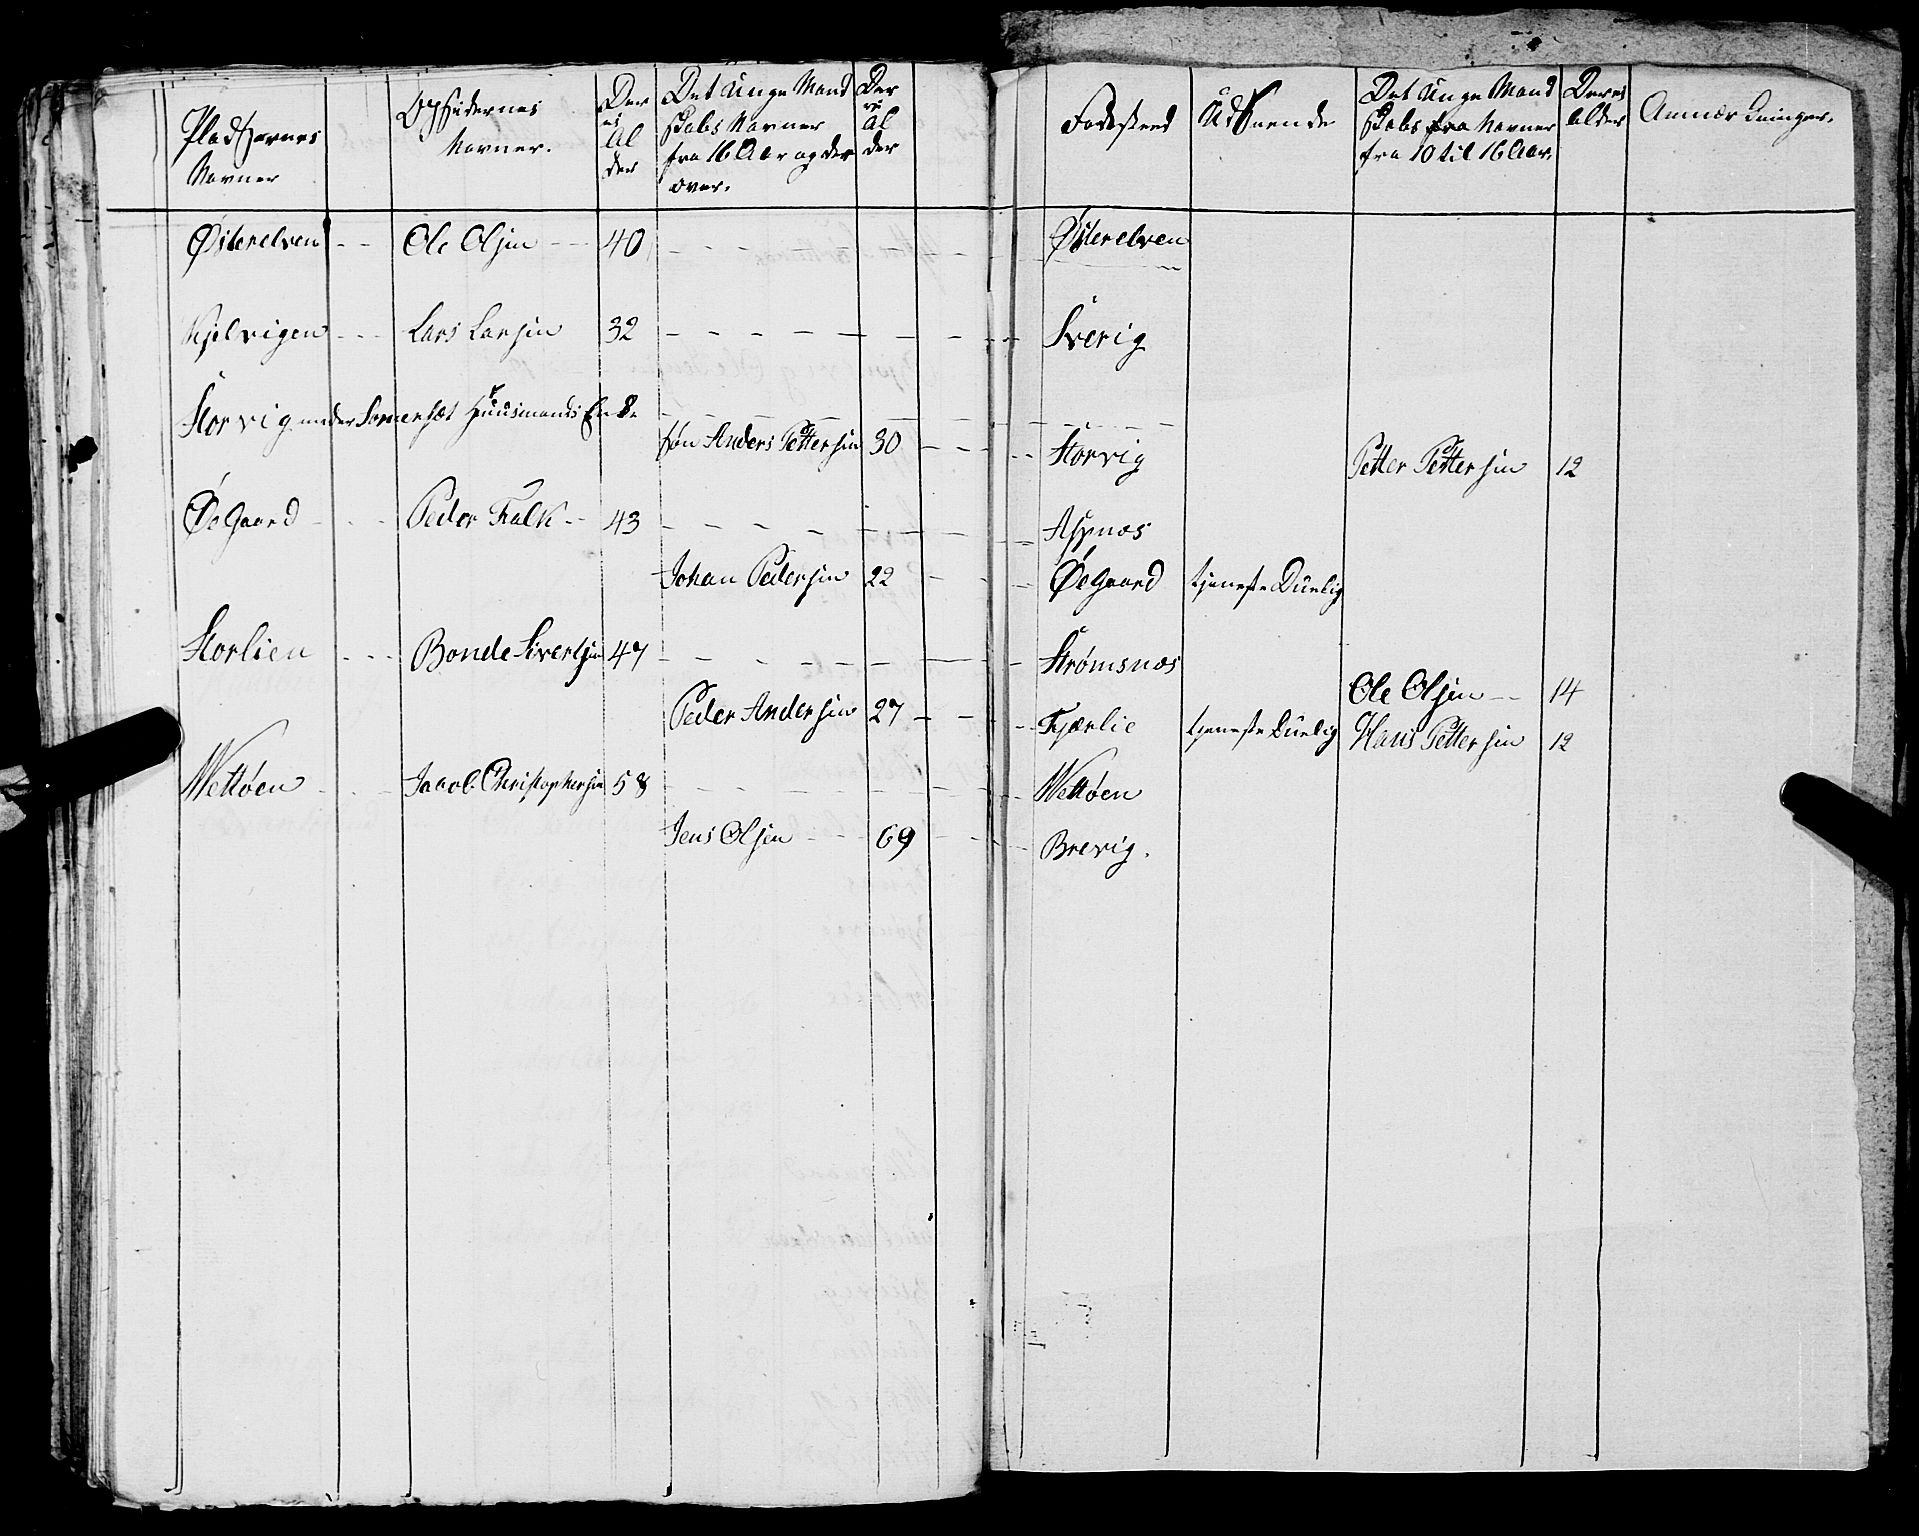 Pladsernes Navner
Opsidernes Navner.
Deres Alder
Det Unge Mandskabs Navner fra 16 Aar og der over.
Deres Alder
Fødesteed
Udseende
Det Unge Mandskabs fra Navner fra 10 til 16 Aar.
Deres Alder
Anmærkninger.
Østerelven - - Ole Olsen - - 40 - - - Østerelven
Kjelvigen - - - Lars Larsen 32 - - - Sverig
Storvig under Sørnersæt Huusmands Enke - - -
søn Anders Pettersen 30 - - - Storvig Petter Pettersen 12
Øegaard - - - Peder Falk - - 43 - - - Aspnæs
Johan Pedersen 22 - - Øegaard tjeneste Duelig
Storlien - - - Bonde Sivertsen 47 - - - Strømsnæs
Ole Olsen - - 14
Peder Andersen 27 - - - Fjærlie tjeneste Duelig Hans Pettersen 12
Wettøen - - - Jacob Christophersen 58 - - - Wettøen
Jens Olsen - - - 69 - - - Brevig.